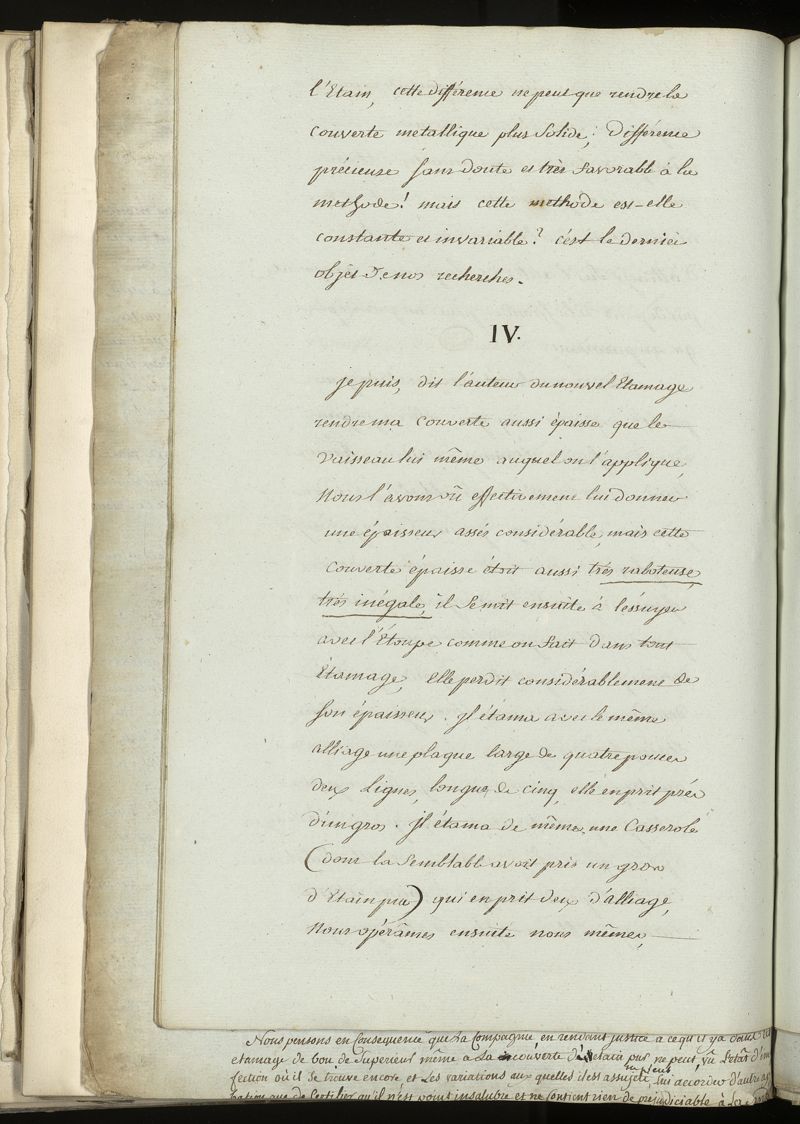 l'Etain, cette différence ne peut que rendre la
couverte metallique plus solide; différence
précieuse sans doute et très favorable à la
methode! mais cette methode est-elle
constante et invariable? c'est le dernier
objèt de nos recherches.
IV.
je puis, dit l'auteur du nouvel Etamage
rendre ma couverte aussi épaisse que le
vaisseau lui même auquel on l'applique,
Nous l'avons vû effectivement lui donner
une épaisseur assés considérable, mais cette
couverte épaisse étoit aussi très raboteuse,
très inégale, il se mit ensuite à l'essuyer
avec l'Étoupe comme on fait dans tout
Étamage, elle perdit considérablement de
son épaisseur. Jl étama avec le même
alliage une plaque large de quatre pouces
deux Lignes, longue de cinq, elle en prit près
d'un gros. Jl étama de même une Casserole
(dont la semblable avoit pris un gros
d'Etain pur) qui en prit deux d'alliage,
Nous opérâmes ensuite nous mêmes,
Nous pensons en Consequence que La Compagnie en rendant justice a ce qu'il y a dans cet
etamage de bon de superieur même a La couverte d'Etain pur ne peut, vû l'etat d'im
fection où il se trouve encore, et Les variations aux quelles il est assujeti, lui accorder d'autre
que de Certifier qu'il n'est point insalubre et ne contient rien de prejudiciable à La